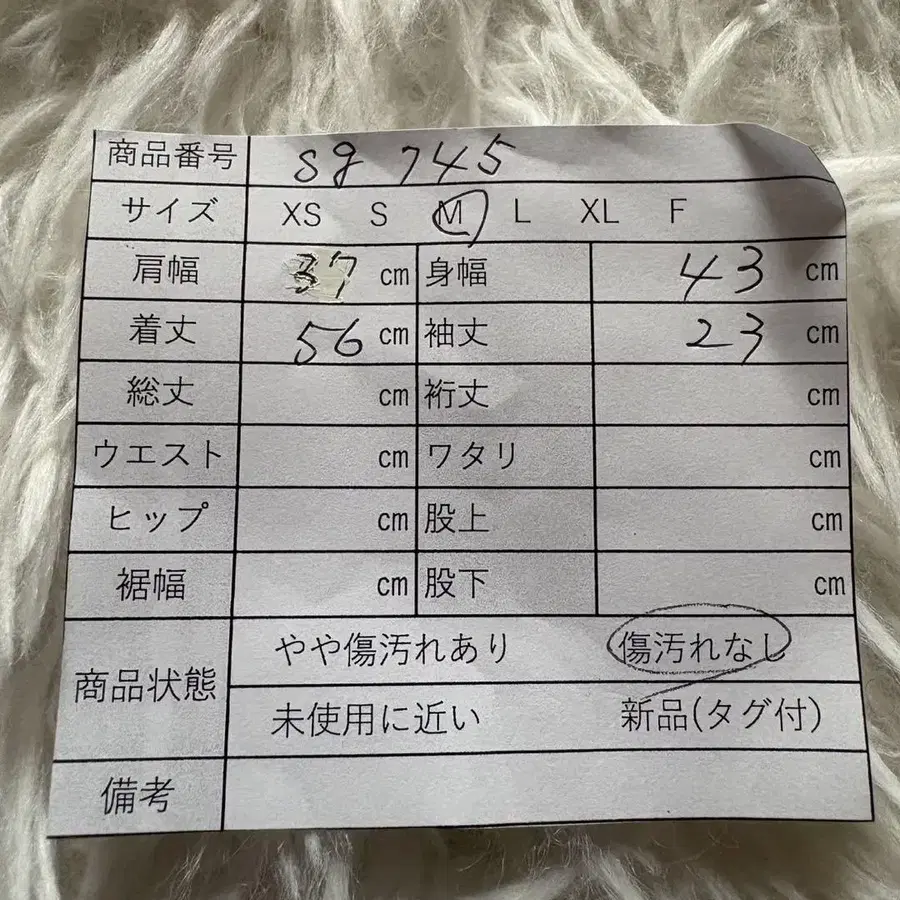 商品番号 sg 745
サイズ XS S M L XL F
肩幅 37 cm 身幅 43 cm
着丈 56 cm 袖丈 23 cm
総丈 cm 裄丈 cm
ウエスト cm ワタリ cm
ヒップ cm 股上 cm
裾幅 cm 股下 cm
商品状態 やや傷汚れあり 傷汚れなし
未使用に近い 新品(タグ付)
備考